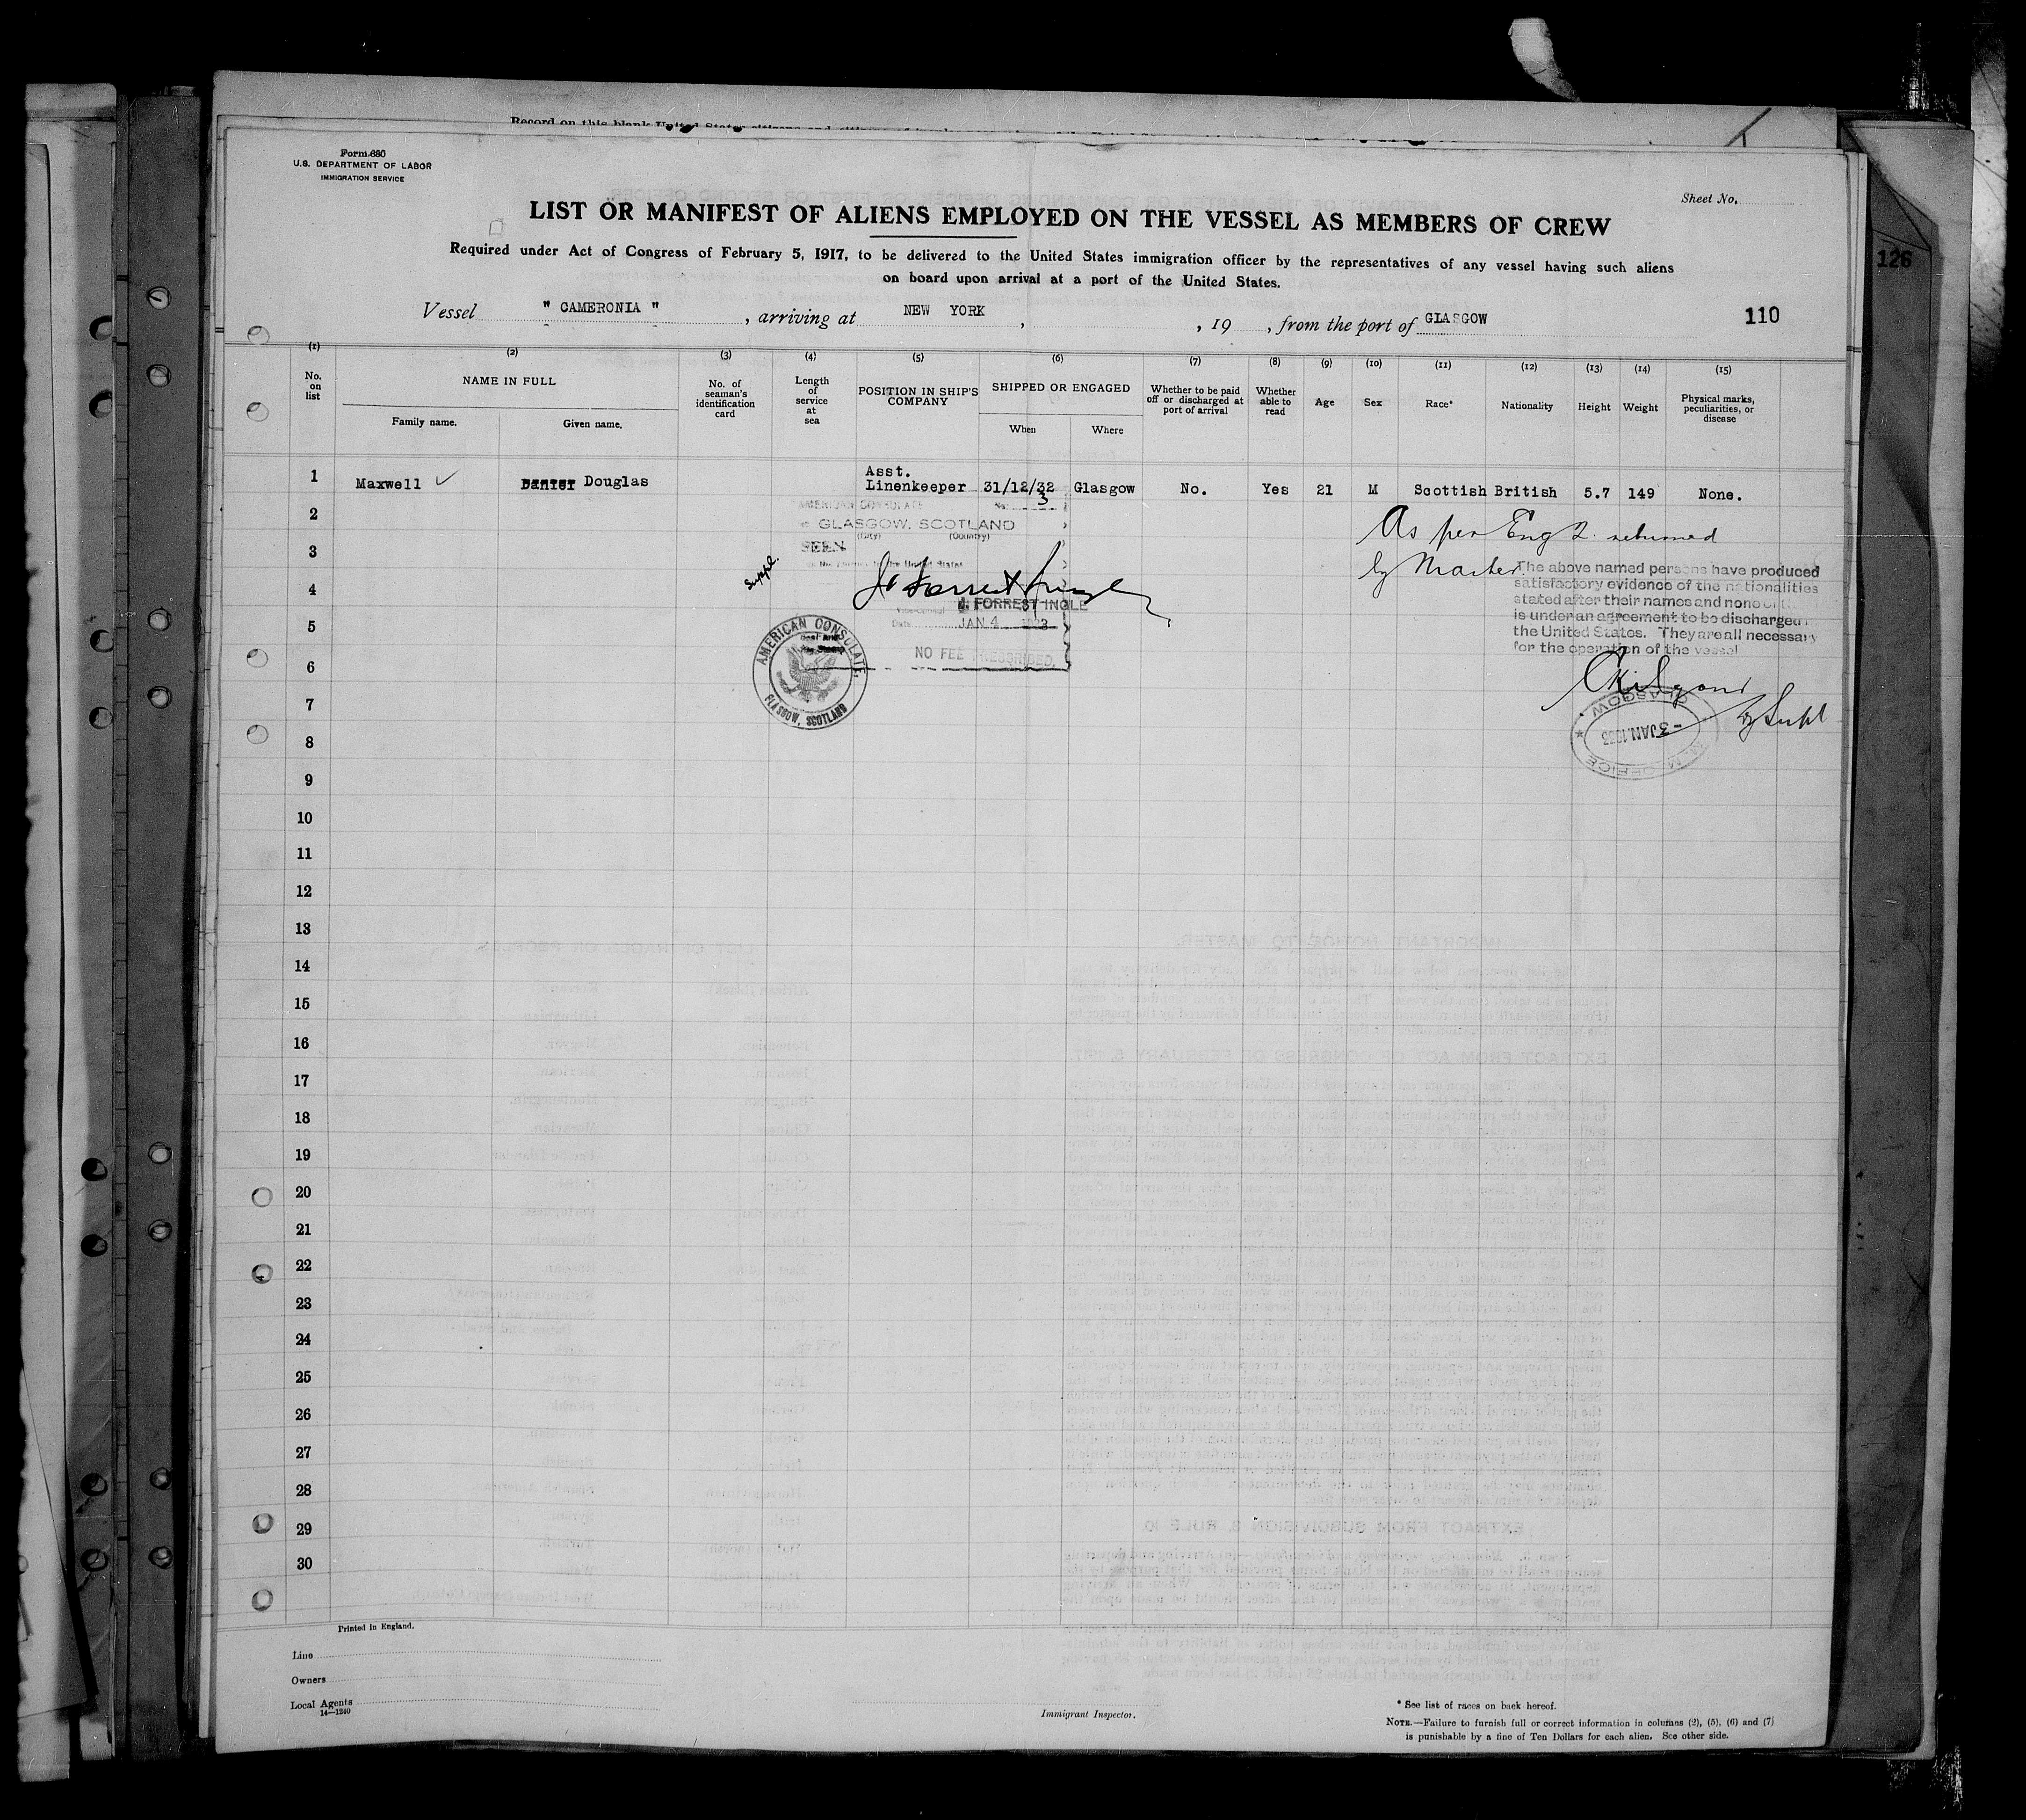 Record on this blank United States citizens and citizens of
Form 680
U.S. DEPARTMENT OF LABOR
IMMIGRATION SERVICE
Sheet No.
LIST OR MANIFEST OF ALIENS EMPLOYED ON THE VESSEL AS MEMBERS OF CREW
Required under Act of Congress of February 5, 1917, to be delivered to the United States immigration officer by the representatives of any vessel having such aliens
on board upon arrival at a port of the United States.
126
Vessel " CAMERONIA " , arriving at NEW YORK , , 19 , from the port of GLASGOW
110
(1) (2) (3) (4) (5) (6) (7) (8) (9) (10) (11) (12) (13) (14) (15)
No. on list
NAME IN FULL
Family name. Given name.
No. of seaman's identification card
Length of service at sea
POSITION IN SHIP'S COMPANY
SHIPPED OR ENGAGED
When Where
Whether to be paid off or discharged at port of arrival
Whether able to read
Age
Sex
Race*
Nationality
Height
Weight
Physical marks, peculiarities, or disease
1 Maxwell ✓ Douglas Asst. Linenkeeper 31/12/32 Glasgow No. Yes 21 M Scottish British 5.7 149 None.
2
3
4
5
6
7
8
9
10
11
12
13
14
15
16
17
18
19
20
21
22
23
24
25
26
27
28
29
30
AMERICAN CONSULATE
No. 3
at GLASGOW, SCOTLAND
(City) (Country)
SEEN
Suppl.
J. Forrest Ingle
J. FORREST INGLE
Vice-Consul
Date JAN 4 1933
NO FEE PRESCRIBED.
AMERICAN CONSULATE,
GLASGOW, SCOTLAND
As per Eng 2. returned
by Master.
The above named persons have produced
satisfactory evidence of the nationalities
stated after their names and none of
is under an agreement to be discharged
the United States. They are all necessary
for the operation of the vessel
by Supt
M. M. OFFICE
- 3 JAN. 1933
GLASGOW
Printed in England.
Line
Owners
Local Agents
14—1240
Immigrant Inspector.
* See list of races on back hereof.
NOTE.—Failure to furnish full or correct information in columns (2), (5), (6) and (7)
is punishable by a fine of Ten Dollars for each alien. See other side.